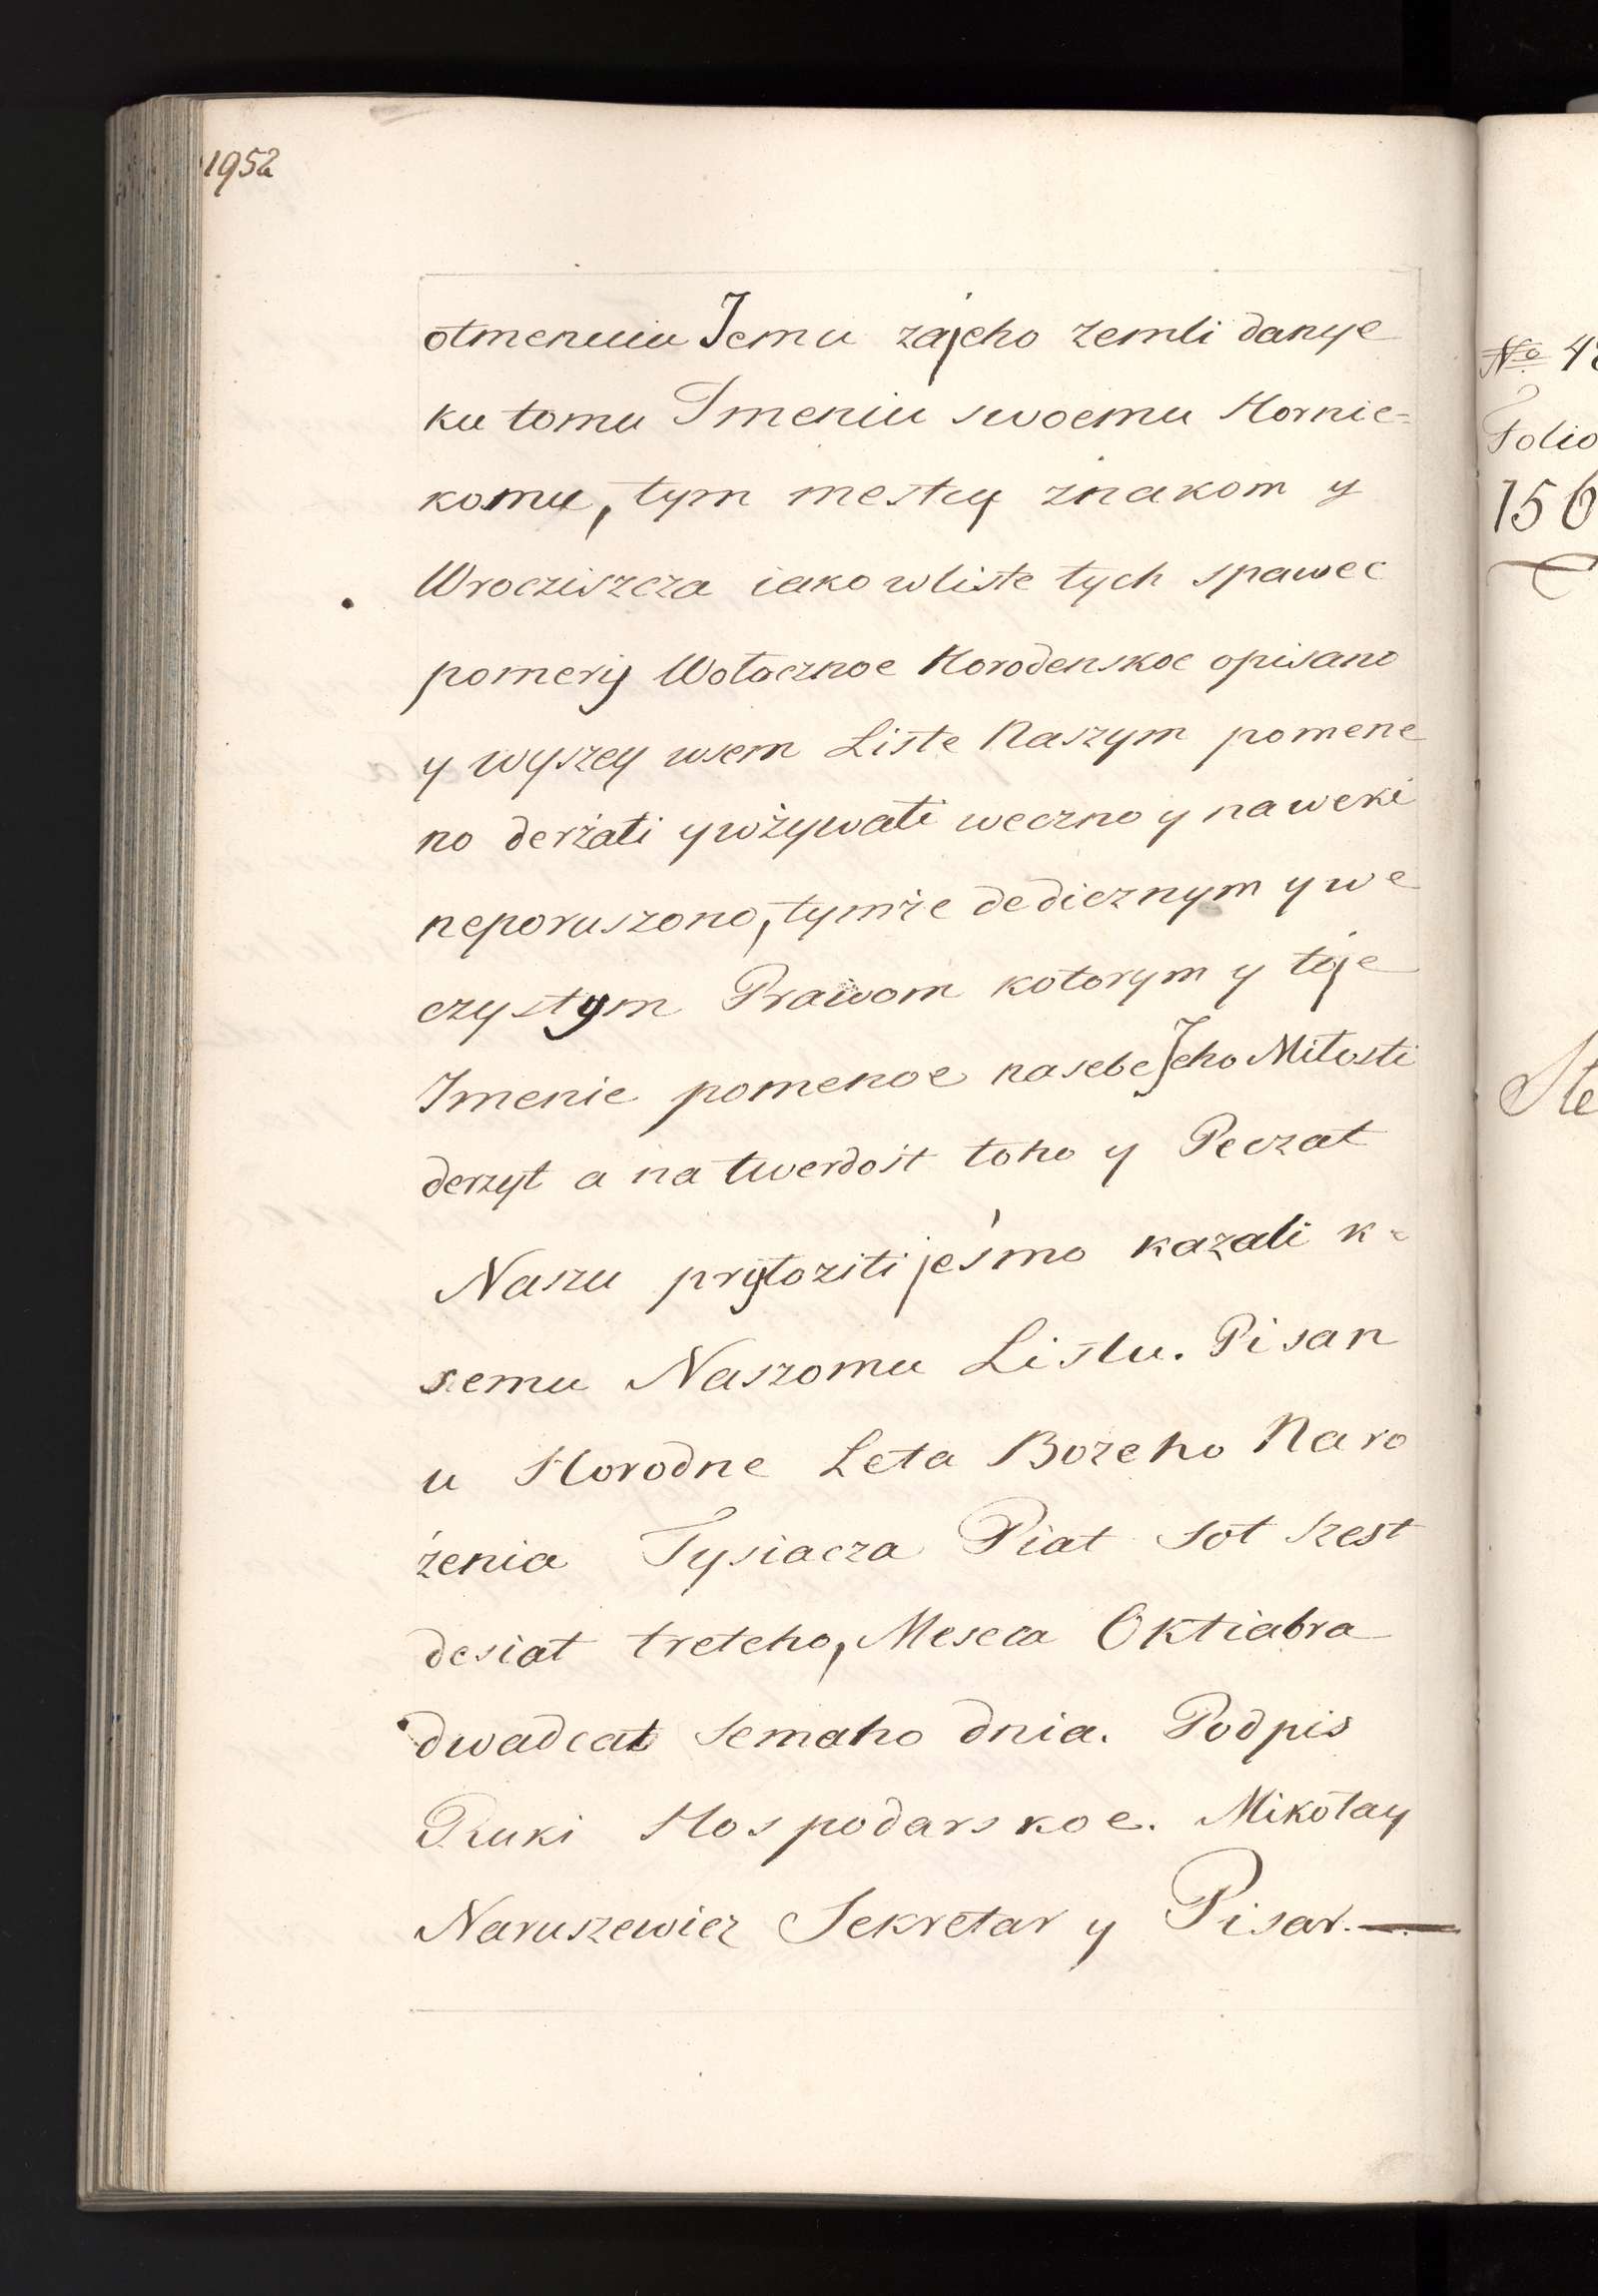 1952
otmenuiu Jemu zajeho zemli danye
ku tomu Imeniu swoemu Hornic=
komu, tym mestcy znakom y
Wrocziszcza iako wliste tych spawec
pomery Wołocznoe Horodenskoe opisano
y wyszey wsem Liste Naszym pomene
no derżati ywżywati weczno y naweki
neporuszono, tymże dedicznym y we
czystym Prawom kotorym y toje
Imenie pomenoe nasebe Jeho Miłosti
derzyt a na twerdost toho y Peczat
Naszu pryłoziti jeśmo kazali k=
semu Naszomu Listu. Pisan
u Horodne Leta Bozeho Naro
żenia Tysiacza Piat sot szest
desiat treteho, Meseca Oktiabra
dwadcat semaho dnia. Podpis
Ruki Hospodarskoe. Mikołay
Naruszewicz Sekretar y Pisar.—
No 4
Folio
156
Ste